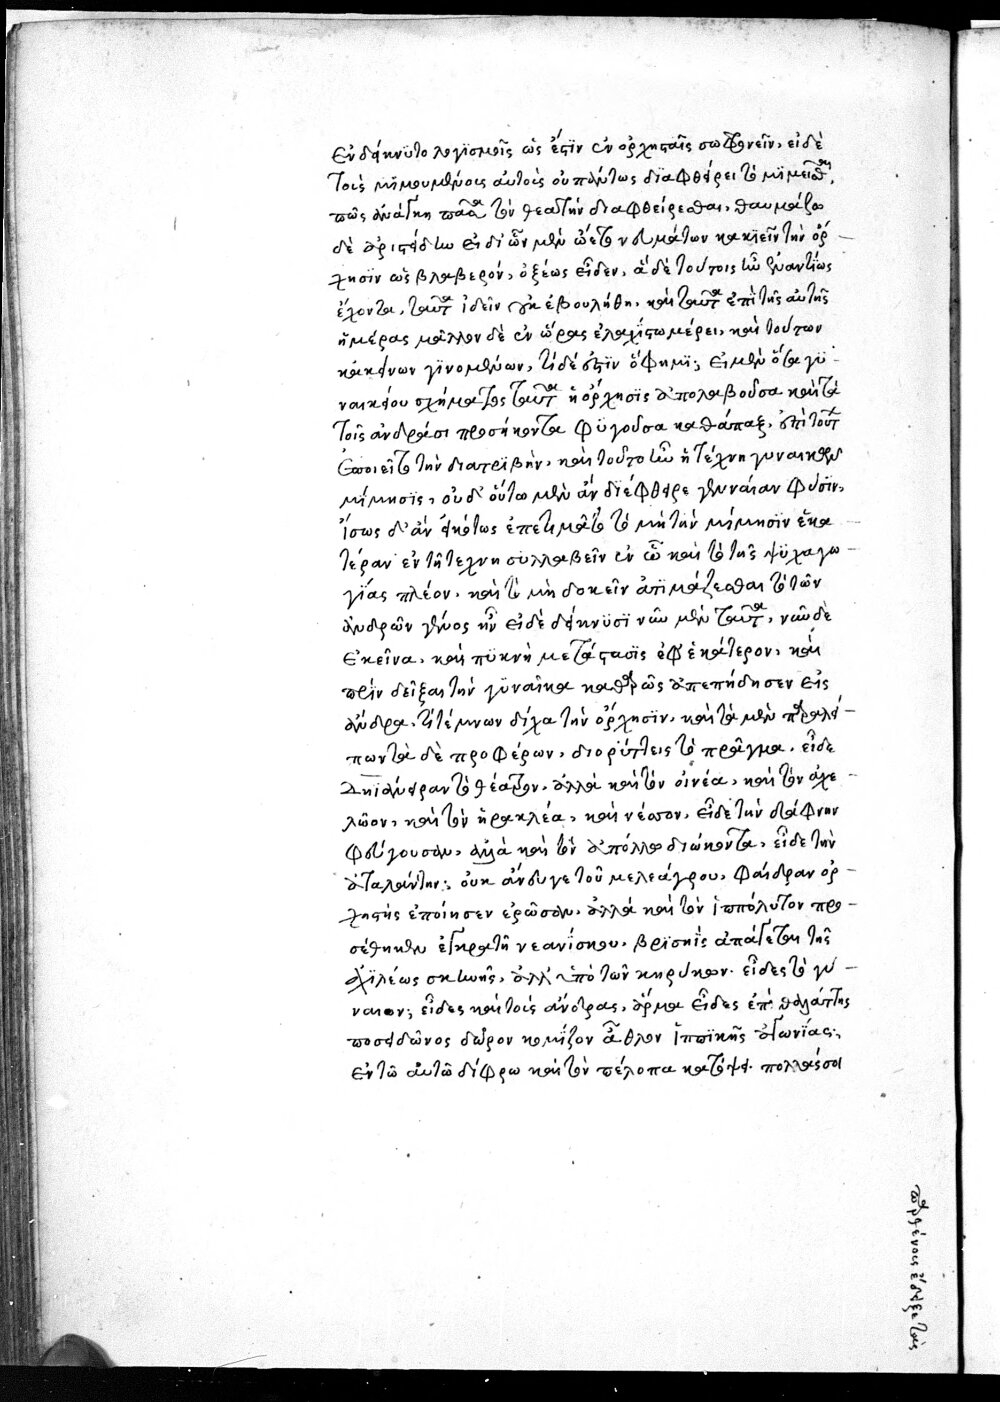 ἐνδείκνυτο λογισμοῖς ὡς ἔστιν ἐν ὀρχησταῖς σωφρονεῖν, εἰ δὲ
τοῖς μιμουμένοις αὐτοὺς οὐ πάντως διαφθείρει τὸ μιμεῖσθαι,
πῶς ἀνάγκη πᾶσα τὸν θεατὴν διαφθείρεσθαι, θαυμάζω
δὲ ἀριστείδην εἰ δι' ὧν μὲν ᾤετο νευμάτων κακιεῖν τὴν ὄρ
χησιν ὡς βλαβερόν, ὀξέως εἶδεν, ἃ δὲ τούτοις ἦν ἐναντίως
ἔχοντα, ταῦτα ἰδεῖν οὐκ ἐβουλήθη, καὶ ταῦτα ἐπὶ τῆς αὐτῆς
ἡμέρας μᾶλλον δὲ ἐν ὥρας ἐλαχίστω μέρει, καὶ τούτων
κἀκείνων γινομένων, τί δέ ἐστιν ὅ φημι; εἰ μὲν ὅσα γυ
ναικείου σχήματος ταῦτα ἡ ὄρχησις ἀπολαβοῦσα καὶ τὰ
τοῖς ἀνδράσι προσήκοντα φυγοῦσα καθάπαξ, ἐπὶ τούτω
ἐποιεῖτο τὴν διατριβήν, καὶ τοῦτο ἦν ἡ τέχνη γυναικῶν
μίμησις, οὐδ' οὕτω μὲν ἂν διέφθειρε γενναίαν φύσιν,
ἴσως δ' ἂν εἰκότως ἐπετιμᾶτο τὸ μὴ τὴν μίμησιν ἑκα
τέραν ἐν τῆ τέχνη συλλαβεῖν ἐν ᾧ καὶ τὸ τῆς ψυχαγω
γίας πλέον, καὶ τὸ μὴ δοκεῖν ἀτιμάζεσθαι τὸ τῶν
ἀνδρῶν γένος ἦν εἰ δὲ δείκνυσι νῦν μὲν ταῦτα, νῦν δὲ
ἐκεῖνα, καὶ πυκνὴ μετάστασις ἐφ' ἑκάτερον, καὶ
πρὶν δεῖξαι τὴν γυναῖκα καθαρῶς ἀπεπήδησεν εἰς
ἄνδρα, τί τέμνων δίχα τὴν ὄρχησιν, καὶ τὰ μὲν παραλεί
πων τὰ δὲ προφέρων, διορύττεις τὸ πρᾶγμα, εἶδε
Δηιάνειραν τὸ θέατρον, ἀλλὰ καὶ τὸν οἰνέα, καὶ τὸν ἀχε
λῶον, καὶ τὸν ἡρακλέα, καὶ νέσσον, εἶδε τὴν δάφνην
φεύγουσαν, ἀλλὰ καὶ τὸν ἀπόλλω διώκοντα, εἶδε τὴν
ἀταλάντην; οὐκ ἄνευγε τοῦ μελεάγρου, φαίδραν ὀρ
χηστὴς ἐποίησεν ἐρῶσαν, ἀλλὰ καὶ τὸν ἱππόλυτον προ
σέθηκεν ἐγκρατῆ νεανίσκον, βρισηὶς ἀπάγεται τῆς
ἀχιλέως σκηνῆς, ἀλλ' ὑπὸ τῶν κηρύκων· εἶδες τὸ γύ
ναιον; εἶδες καὶ τοὺς ἄνδρας, ἅρμα εἶδες ἐπὶ θαλάττης
ποσειδῶνος δῶρον κομίζον ἆθλον ἱππικῆς ἀγωνίας;
ἐν τῶ αὐτῶ δίφρω καὶ τὸν πέλοπα κατόψει· πολλάς σοι
παρθένους ἔδειξε τὰς